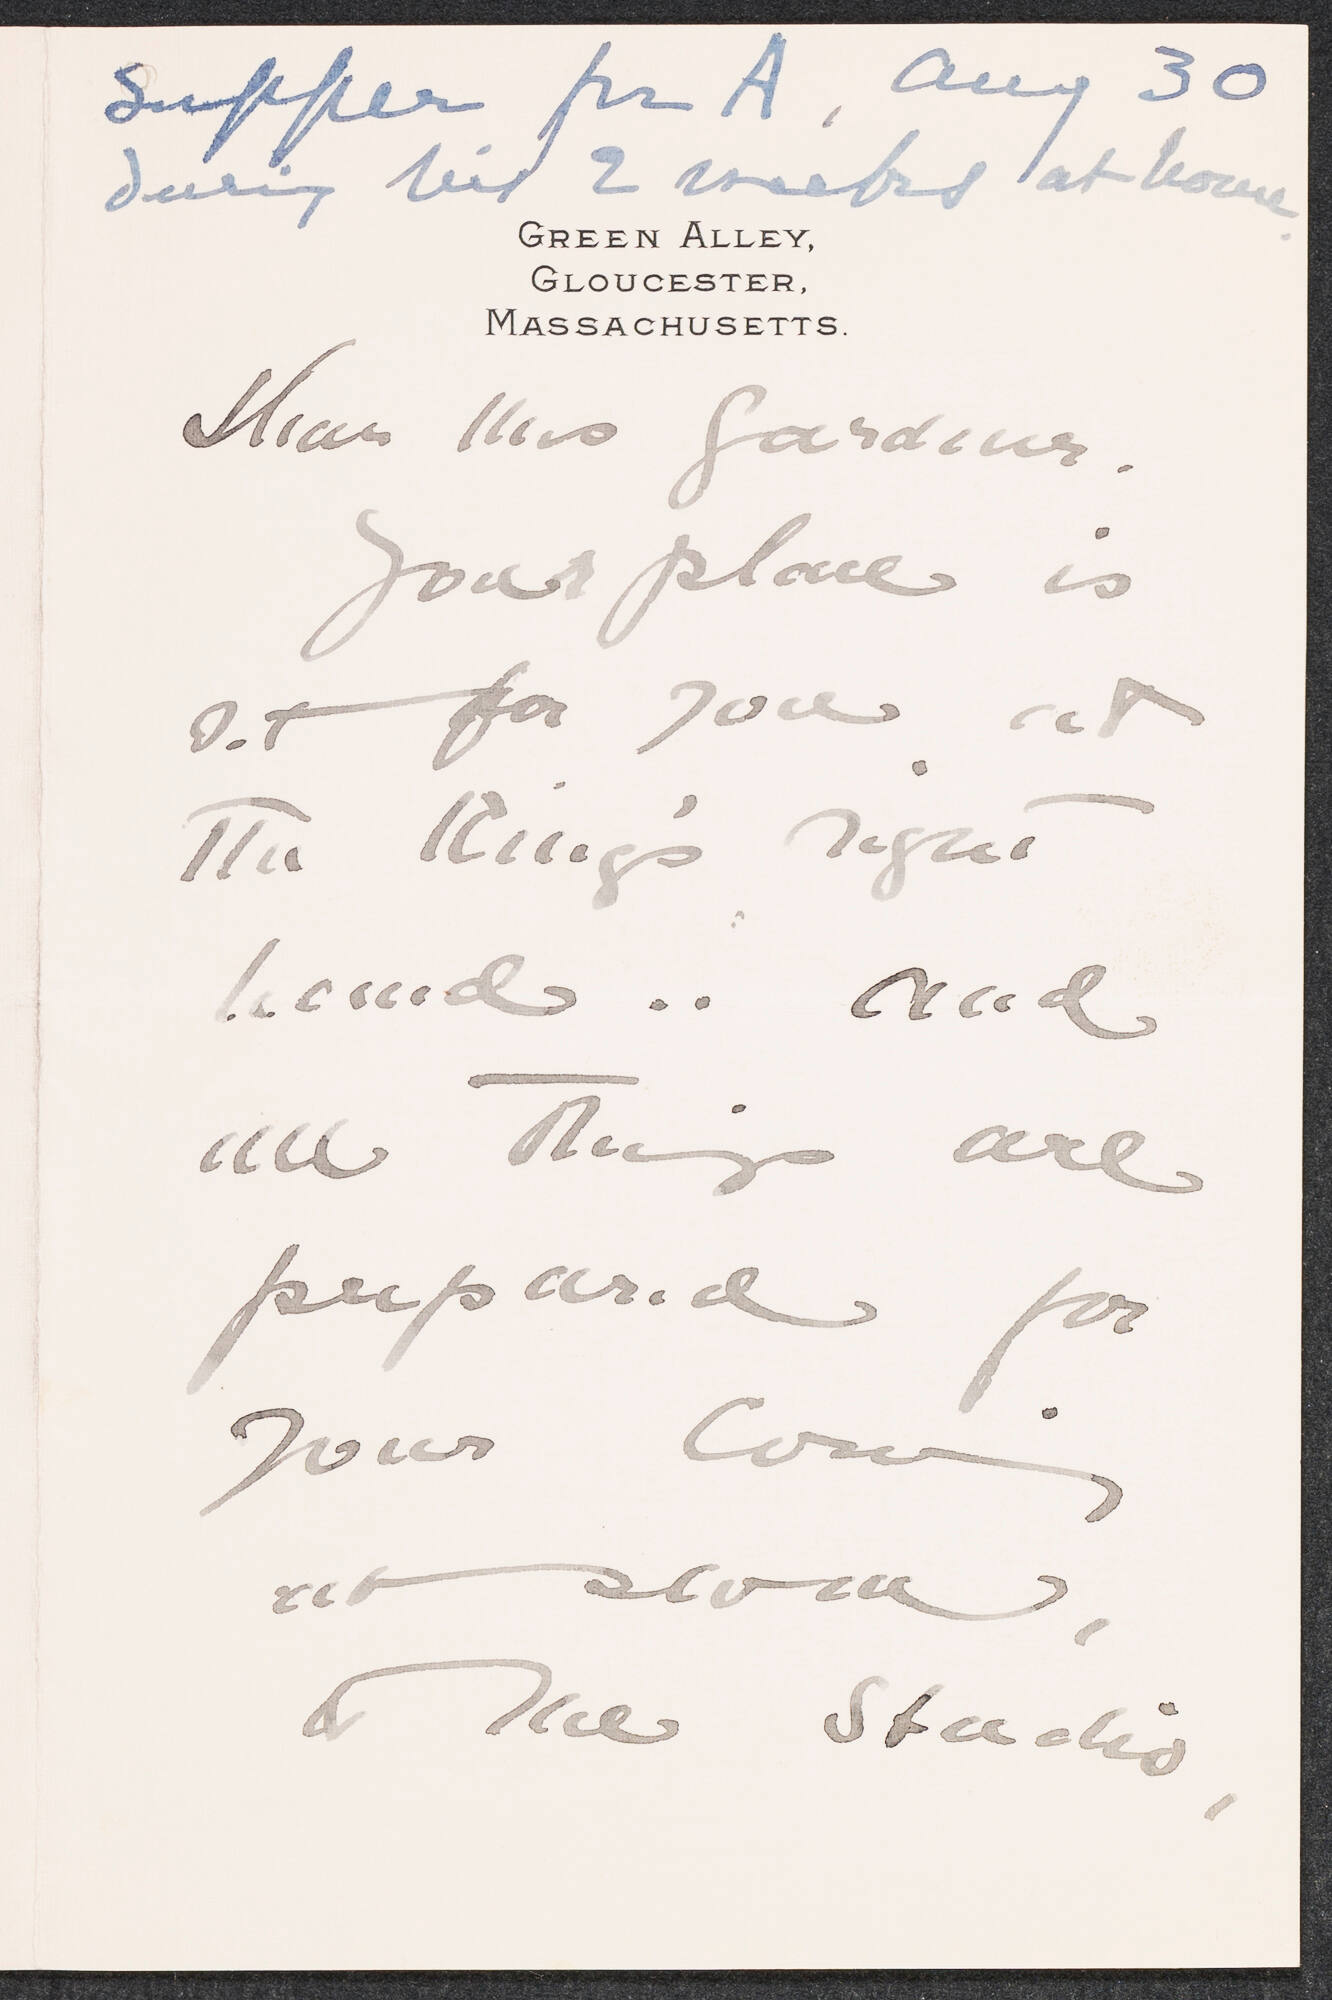 Supper for A, Aug 30
during his 2 weeks at home.
GREEN ALLEY,
GLOUCESTER,
MASSACHUSETTS.
Dear Mrs Gardner.
Your place is
set for you at
the King's right
hand .. and
all things are
prepared for
your coming
at
to the Studio,